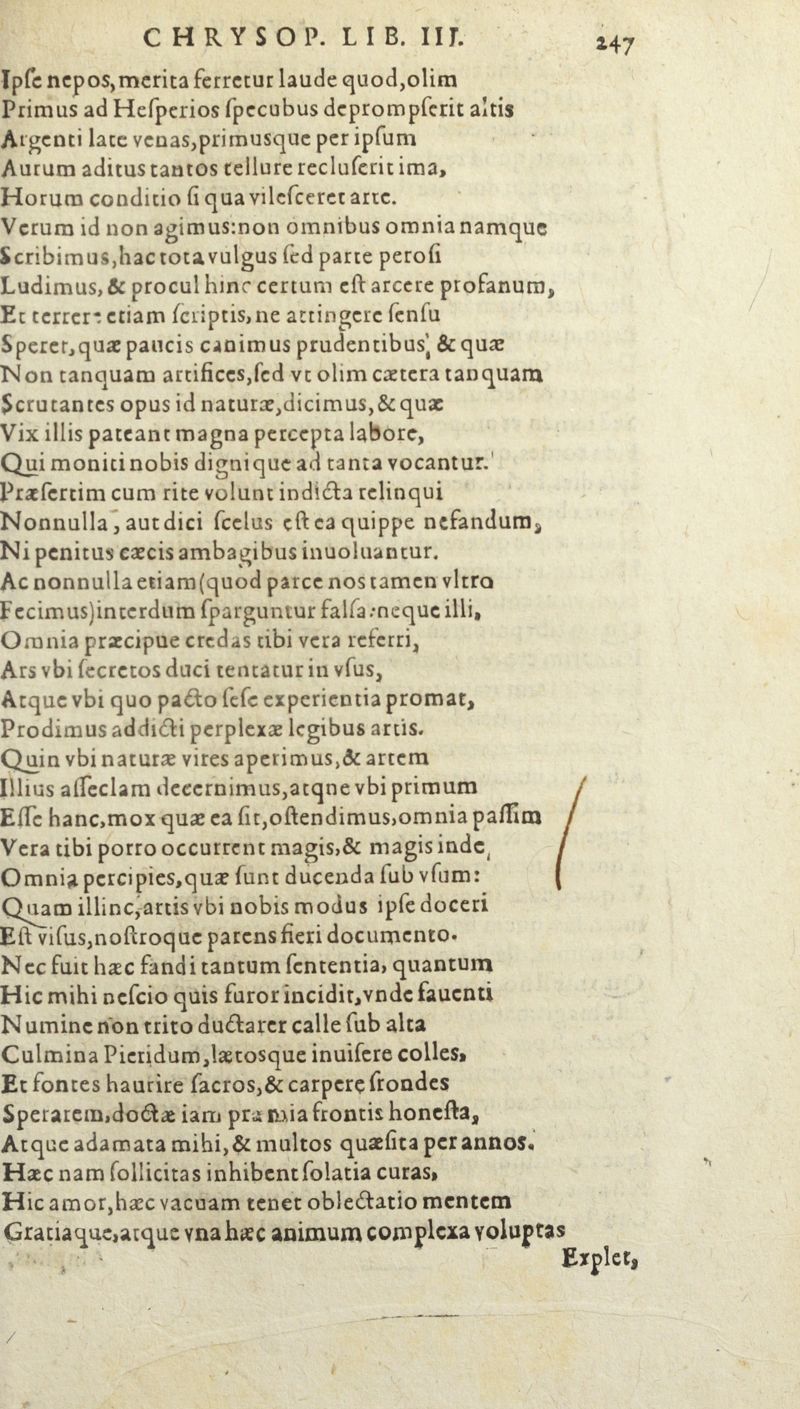 CHRYSOP. LIB. III. 247
Ipſe nepos, merita ferretur laude quod, olim
Primus ad Heſperios ſpecubus deprompſerit altis
Argenti late venas, primusque per ipſum
Aurum aditus tantos tellure recluſerit ima,
Horum conditio ſi qua vileſceret arte.
Verum id non agimus: non omnibus omnia namque
Scribimus, hac tota vulgus ſed parte peroſi
Ludimus, & procul hinc certum eſt arcere profanum,
Et terrere etiam ſcriptis, ne attingere ſenſu
Speret, quæ paucis canimus prudentibus, & quæ
Non tanquam artifices, ſed vt olim cætera tanquam
Scrutantes opus id naturæ, dicimus, & quæ
Vix illis pateant magna percepta labore,
Qui moniti nobis dignique ad tanta vocantur.
Præſertim cum rite volunt indicta relinqui
Nonnulla, aut dici ſcelus eſt ea quippe nefandum,
Ni penitus cæcis ambagibus inuoluantur.
Ac nonnulla etiam (quod parce nos tamen vltro
Fecimus) interdum ſparguntur falſa: neque illi,
Omnia præcipue credas tibi vera referri,
Ars vbi ſecretos duci tentatur in vſus,
Atque vbi quo pacto ſeſe experientia promat,
Prodimus addicti perplexæ legibus artis.
Quin vbi naturæ vires aperimus, & artem
Illius aſſeclam decernimus, atqne vbi primum
Eſſe hanc, mox quæ ea ſit, oſtendimus, omnia paſſim
Vera tibi porro occurrent magis, & magis inde,
Omnia percipies, quæ ſunt ducenda ſub vſum:
Quam illinc, artis vbi nobis modus ipſe doceri
Eſt viſus, noſtroque parens fieri documento.
Nec fuit hæc fandi tantum ſententia, quantum
Hic mihi neſcio quis furor incidit, vnde fauenti
Numine non trito ductarer calle ſub alta
Culmina Pieridum, lætosque inuiſere colles,
Et fontes haurire ſacros, & carpere frondes
Sperarem, doctæ iam præmia frontis honeſta,
Atque adamata mihi, & multos quæſita per annos.
Hæc nam ſollicitas inhibent ſolatia curas,
Hic amor, hæc vacuam tenet oblectatio mentem
Gratiaque, atque vna hæc animum complexa voluptas
Explet,